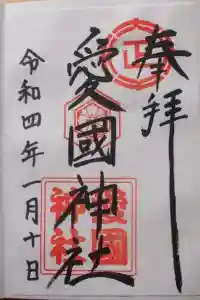 奉拝
愛國神社
愛國
神社
令和四年一月十日